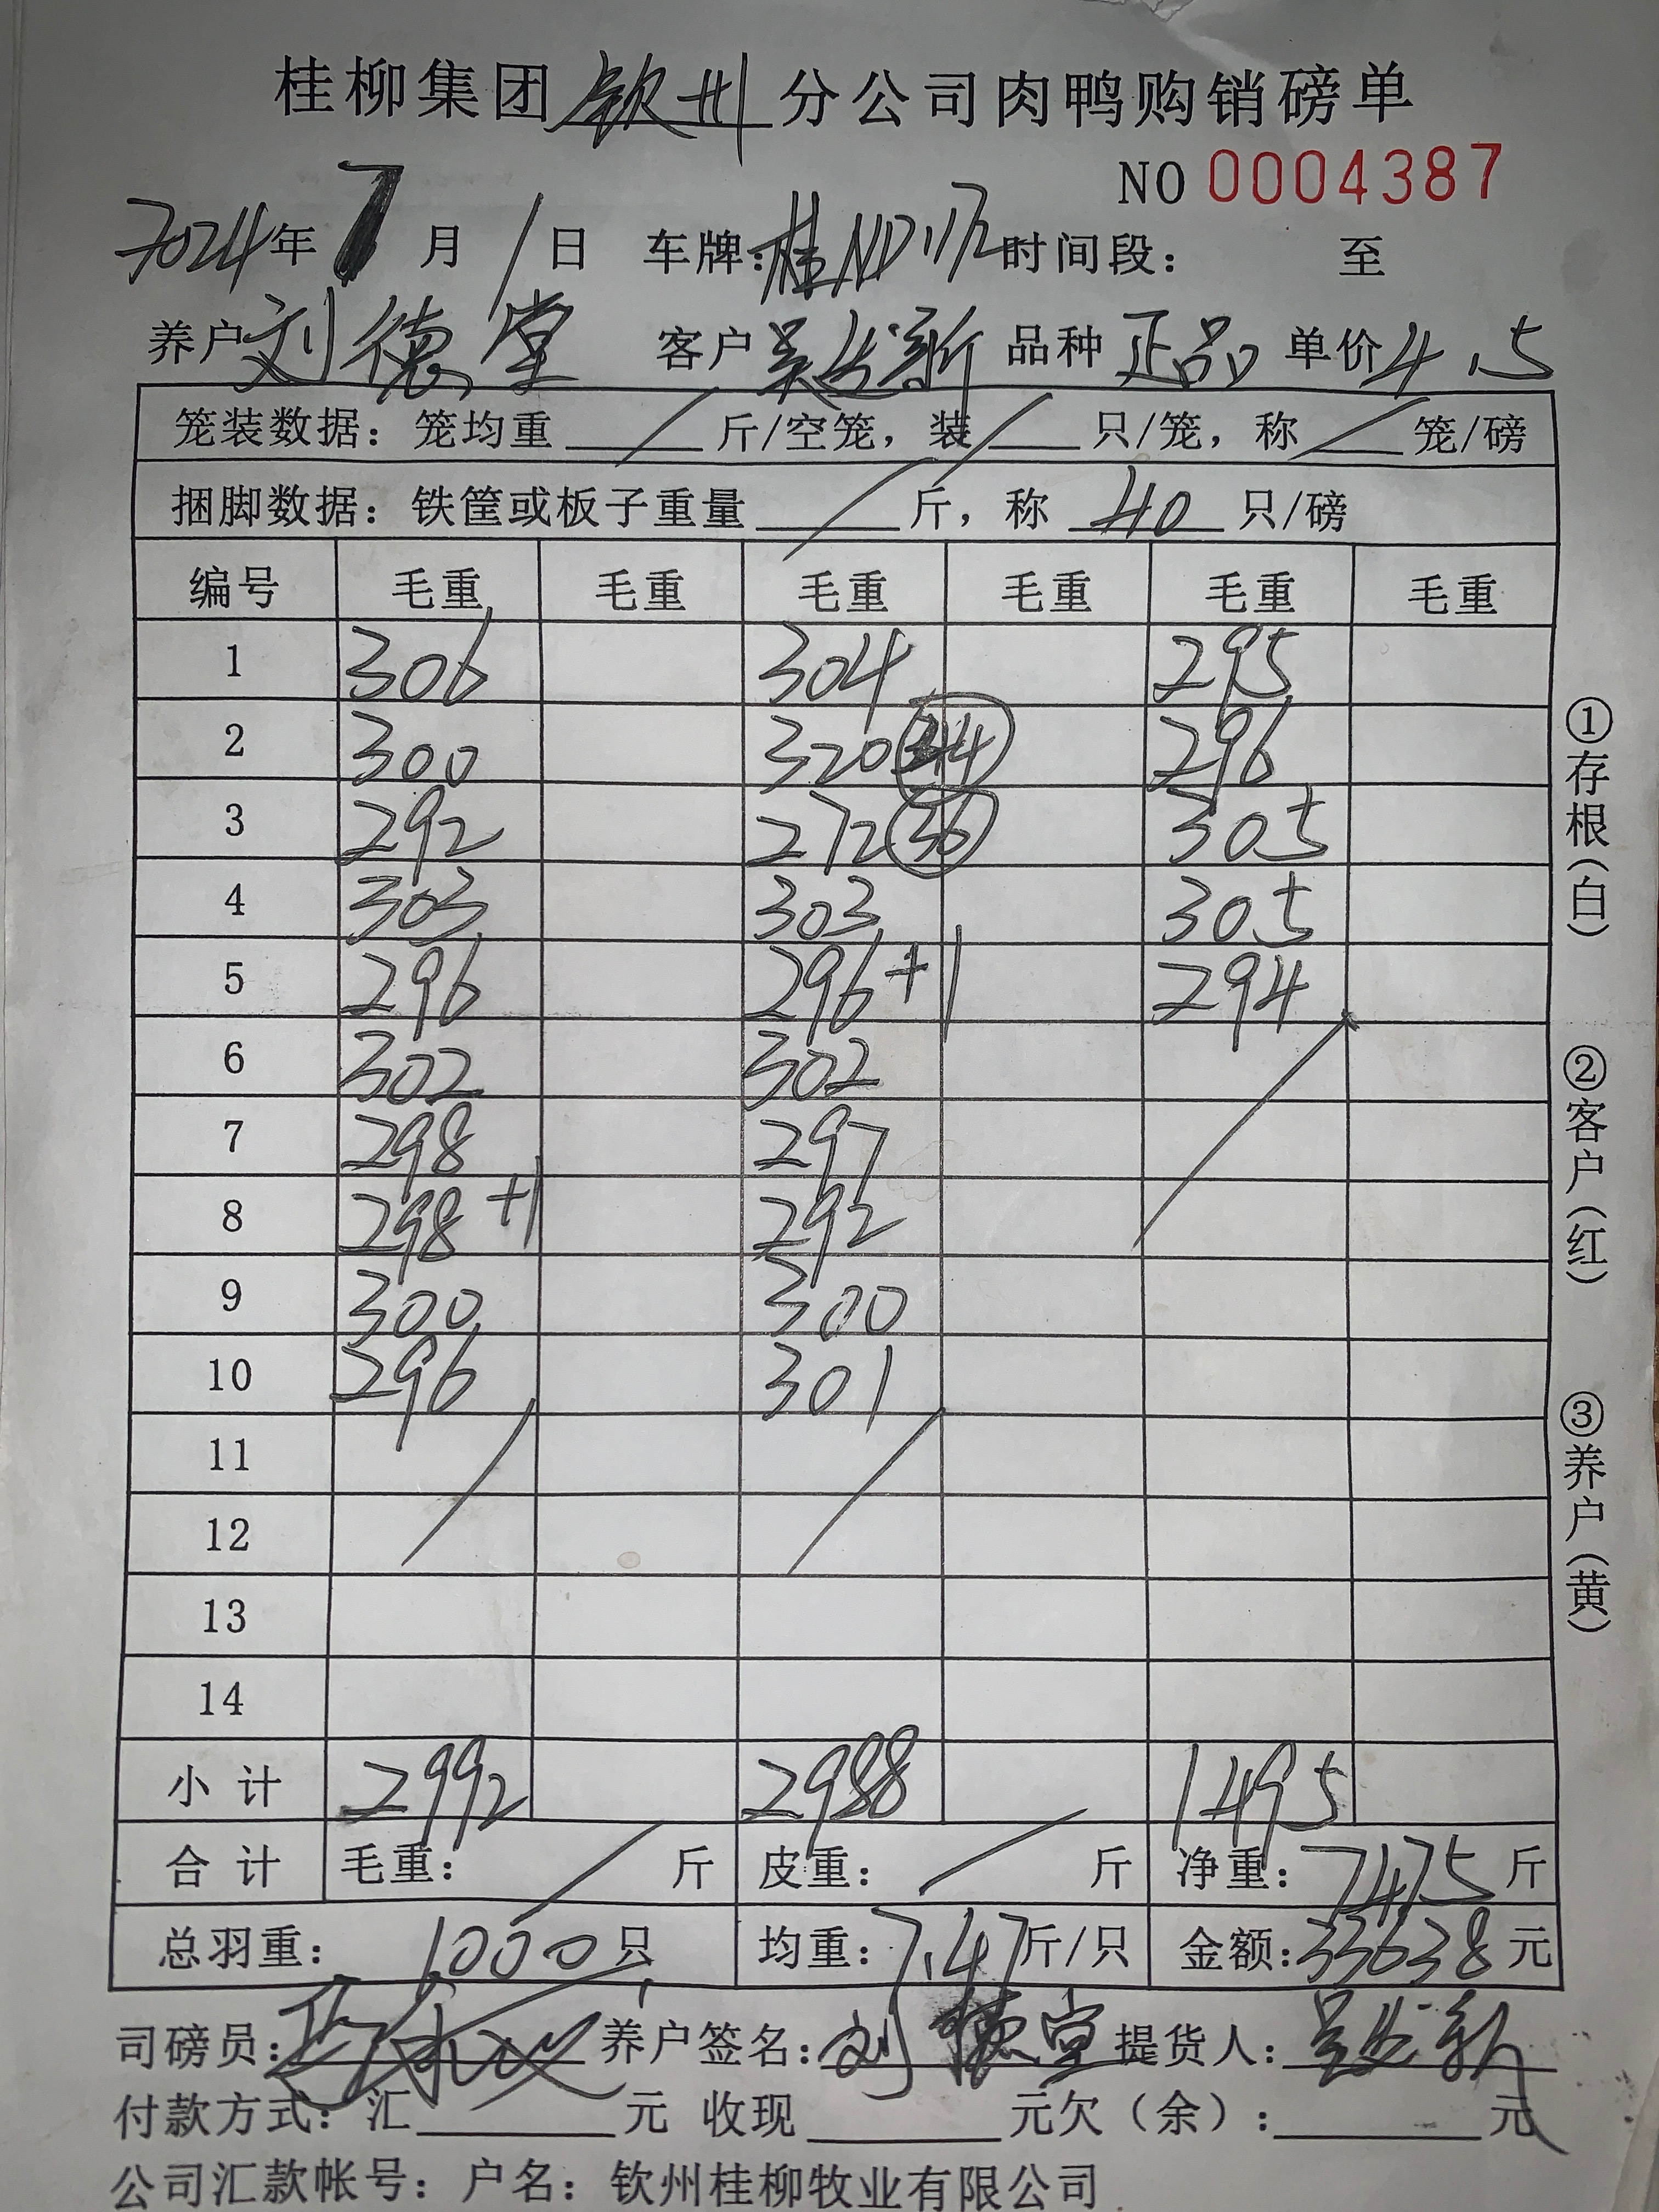 桂柳集团钦州分公司肉鸭购销磅单
NO 0004387
2024年7月1日 车牌:桂ND1172时间段: 至
养户刘德堂 客户吴 新 品种正品 单价4.5
笼装数据: 笼均重 / 斤/空笼, 装 / 只/笼, 称 / 笼/磅
捆脚数据: 铁筐或板子重量 / 斤, 称 40 只/磅
编号 毛重 毛重 毛重 毛重 毛重 毛重
1 306 304 295
2 300 320 44 296
3 292 272 36 305
4 303 303 305
5 296 296+1 294
6 302 302
7 298 297
8 298+1 292
9 300 300
10 296 301
11
12
13
14
小计 2992 2988 1495
合计 毛重: / 斤 皮重: / 斤 净重: 7475 斤
总羽重: 1000只 均重: 7.47斤/只 金额:33638元
司磅员: 养户签名:刘德堂 提货人:吴 新
付款方式: 汇 元 收现 元欠(余): 元
公司汇款帐号: 户名: 钦州桂柳牧业有限公司
①存根(白)
②客户(红)
③养户(黄)